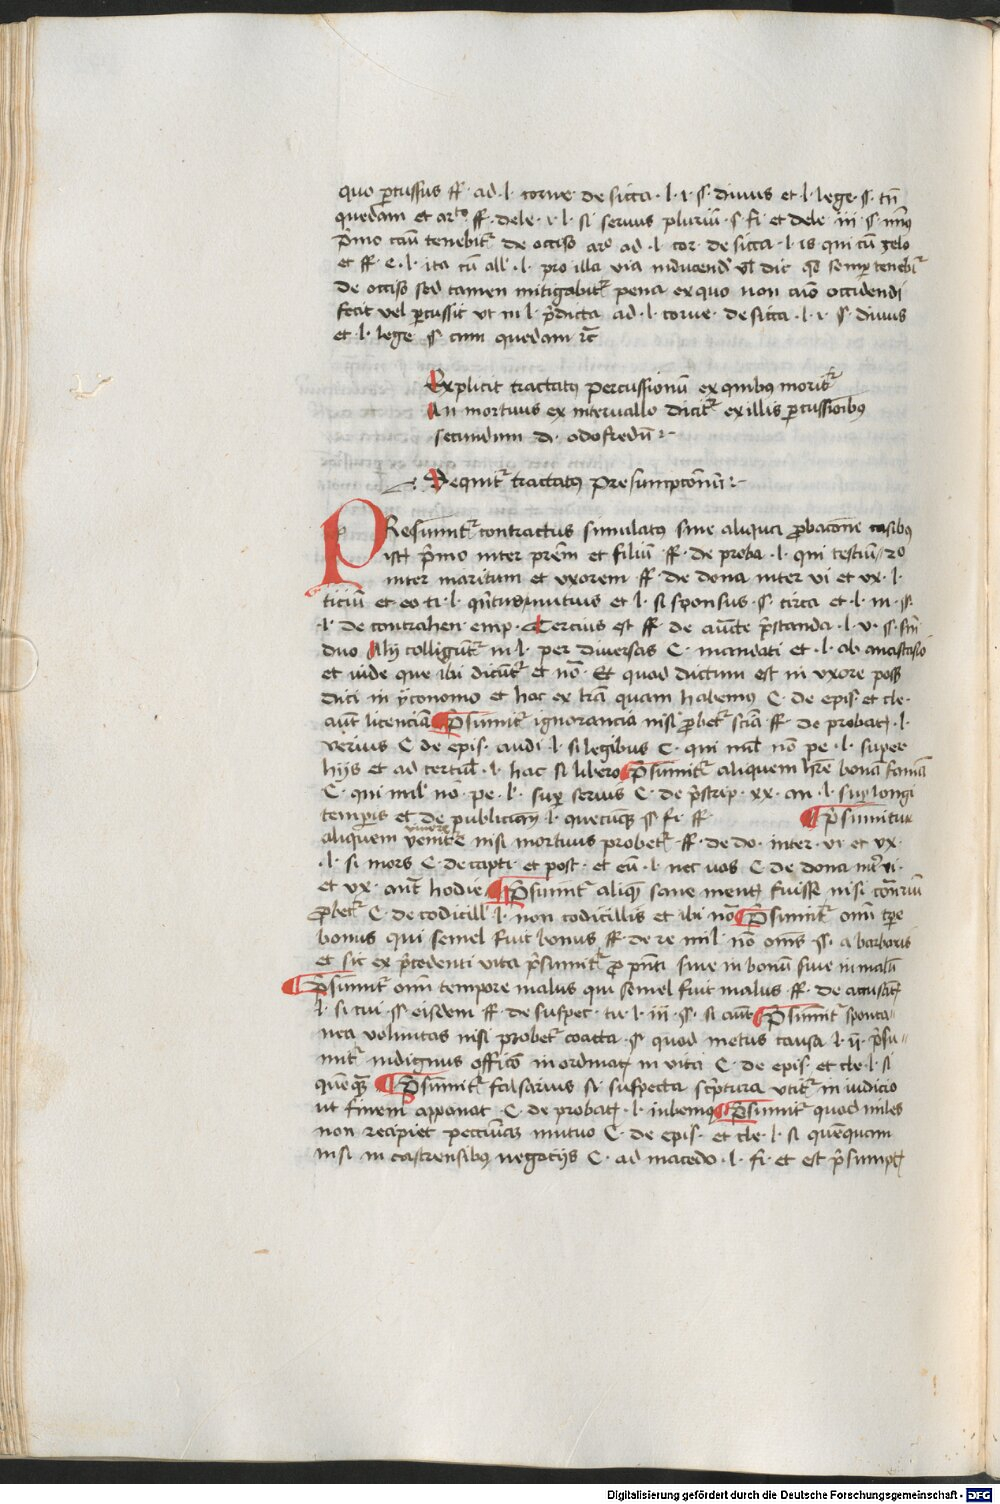 quo percussus ff. ad. l. corne. de sicca. l. i. §. diuus et l. lege. §. cū
quedam et ar. ff. de le. i. l. si seruus pluriū. §. fi. et de le. iii. §.
p̄mo cāu tenebit᷑ de occiso ar. ad. l. cor. de sicca. l. is qui cū zelo
et ff. e. l. ita cū all. l. pro illa via inducend vl dic semp tenebit᷑
de occiso sed tamen mitigabit᷑ pena ex quo non aīo occidendi
fecit vel p̄cussit vt in l. p̄dicta ad. l. corne. de sicca. l. i. §. diuus
et l. lege. §. cum quedam ꝛc̄
Explicit tractatꝯ percussionū ex quibꝯ morit᷑
An mortuus ex interuallo dicit᷑ ex illis p̄cussioībus
secundum d. odofredū :-
Sequit᷑ tractatꝯ presumpcōnū :-
PResūmit᷑ contractus simulatꝯ sine aliqua ꝓbacōne casibus
istꝭ p̄mo inter prēm et filiū ff. de proba. l. qui testiū. 2o
inter maritum et vxorem ff. de dona. inter vi. et vx. l.
ticiū et eo. ti. l. quītus mutuus et l. si sponsus. §. circa et l. iii. §.
l. de contrahen. emp. Tercius est ff. de aucte. p̄standa. l. v. §. fin
duo Alij colligunt᷑ in l. per diuersas C. mandati et. l. ab anastasio
et inde que ibi dicunt᷑ et nō. Et quod dictum est in vxore poss
dici in yconomo et hac ex trā quam habemus C. de epis. et cle.
auct. licenciā p̄sumit᷑ ignorancia nisi ꝓbet᷑ sciā ff. de probatꝭ. l.
verius C. de epis. audi. l. si legibus C. qui mil. nō pe. l. super
hijs et ad tertul. l. hac si libero p̄sumit᷑ aliquem hr̄e bonā famā
C. qui mil. nō. pe. l. sup seruus C. de p̄scrip. xx. an. l. sup longi
temp̄is et de publicianꝭ. l. quecūqꝫ §. fi. ff. p̄sumitur
aliquem viuere nisi mortuus probet᷑ ff. de do. inter. vi. et vx.
l. si mors C. de capti. et post. et eū. l. nec uos C. de dona int᷑ vi.
et vx. auct. hodie p̄sumit᷑ aliqꝫ sane mentꝭ fuisse nisi cōtrariū
ꝓbet᷑ C. de codicill. l. non codicillis et ibi nō p̄sumit᷑ omī tpe
bonus qui semel fuit bonus ff. de re mil. nō oms. §. a barbaris
et sic ex p̄cedenti vita p̄sumit᷑ ꝓ pn̄ti siue in bonū siue in malū
p̄sumit᷑ omī tempore malus qui semel fuit malus ff. de accusatꝭ
l. si cui. §. eisdem ff. de suspec. tu. l. iii. §. si auct. p̄sumit᷑ sponta-
nea voluntas nisi probet᷑ coacta. §. quod metus causa l. ii. p̄su-
mit᷑ indignus officō in ordinatꝭ in vita C. de epis. et cle. l. si
quēqꝫ p̄sumit᷑ falsarius si suspecta sc̄ptura vtit᷑ in iudicio
ut finem apponat C. de probatꝭ. l. iubemꝯ p̄sumit᷑ quod miles
non recipiet pecciniā mutuo C. de epis. et cle. l. si quēquam
nisi in castrensibꝯ negocijs C. ad macedo. l. fi. et est p̄sumptꝭ
Digitalisierung gefördert durch die Deutsche Forschungsgemeinschaft - DFG